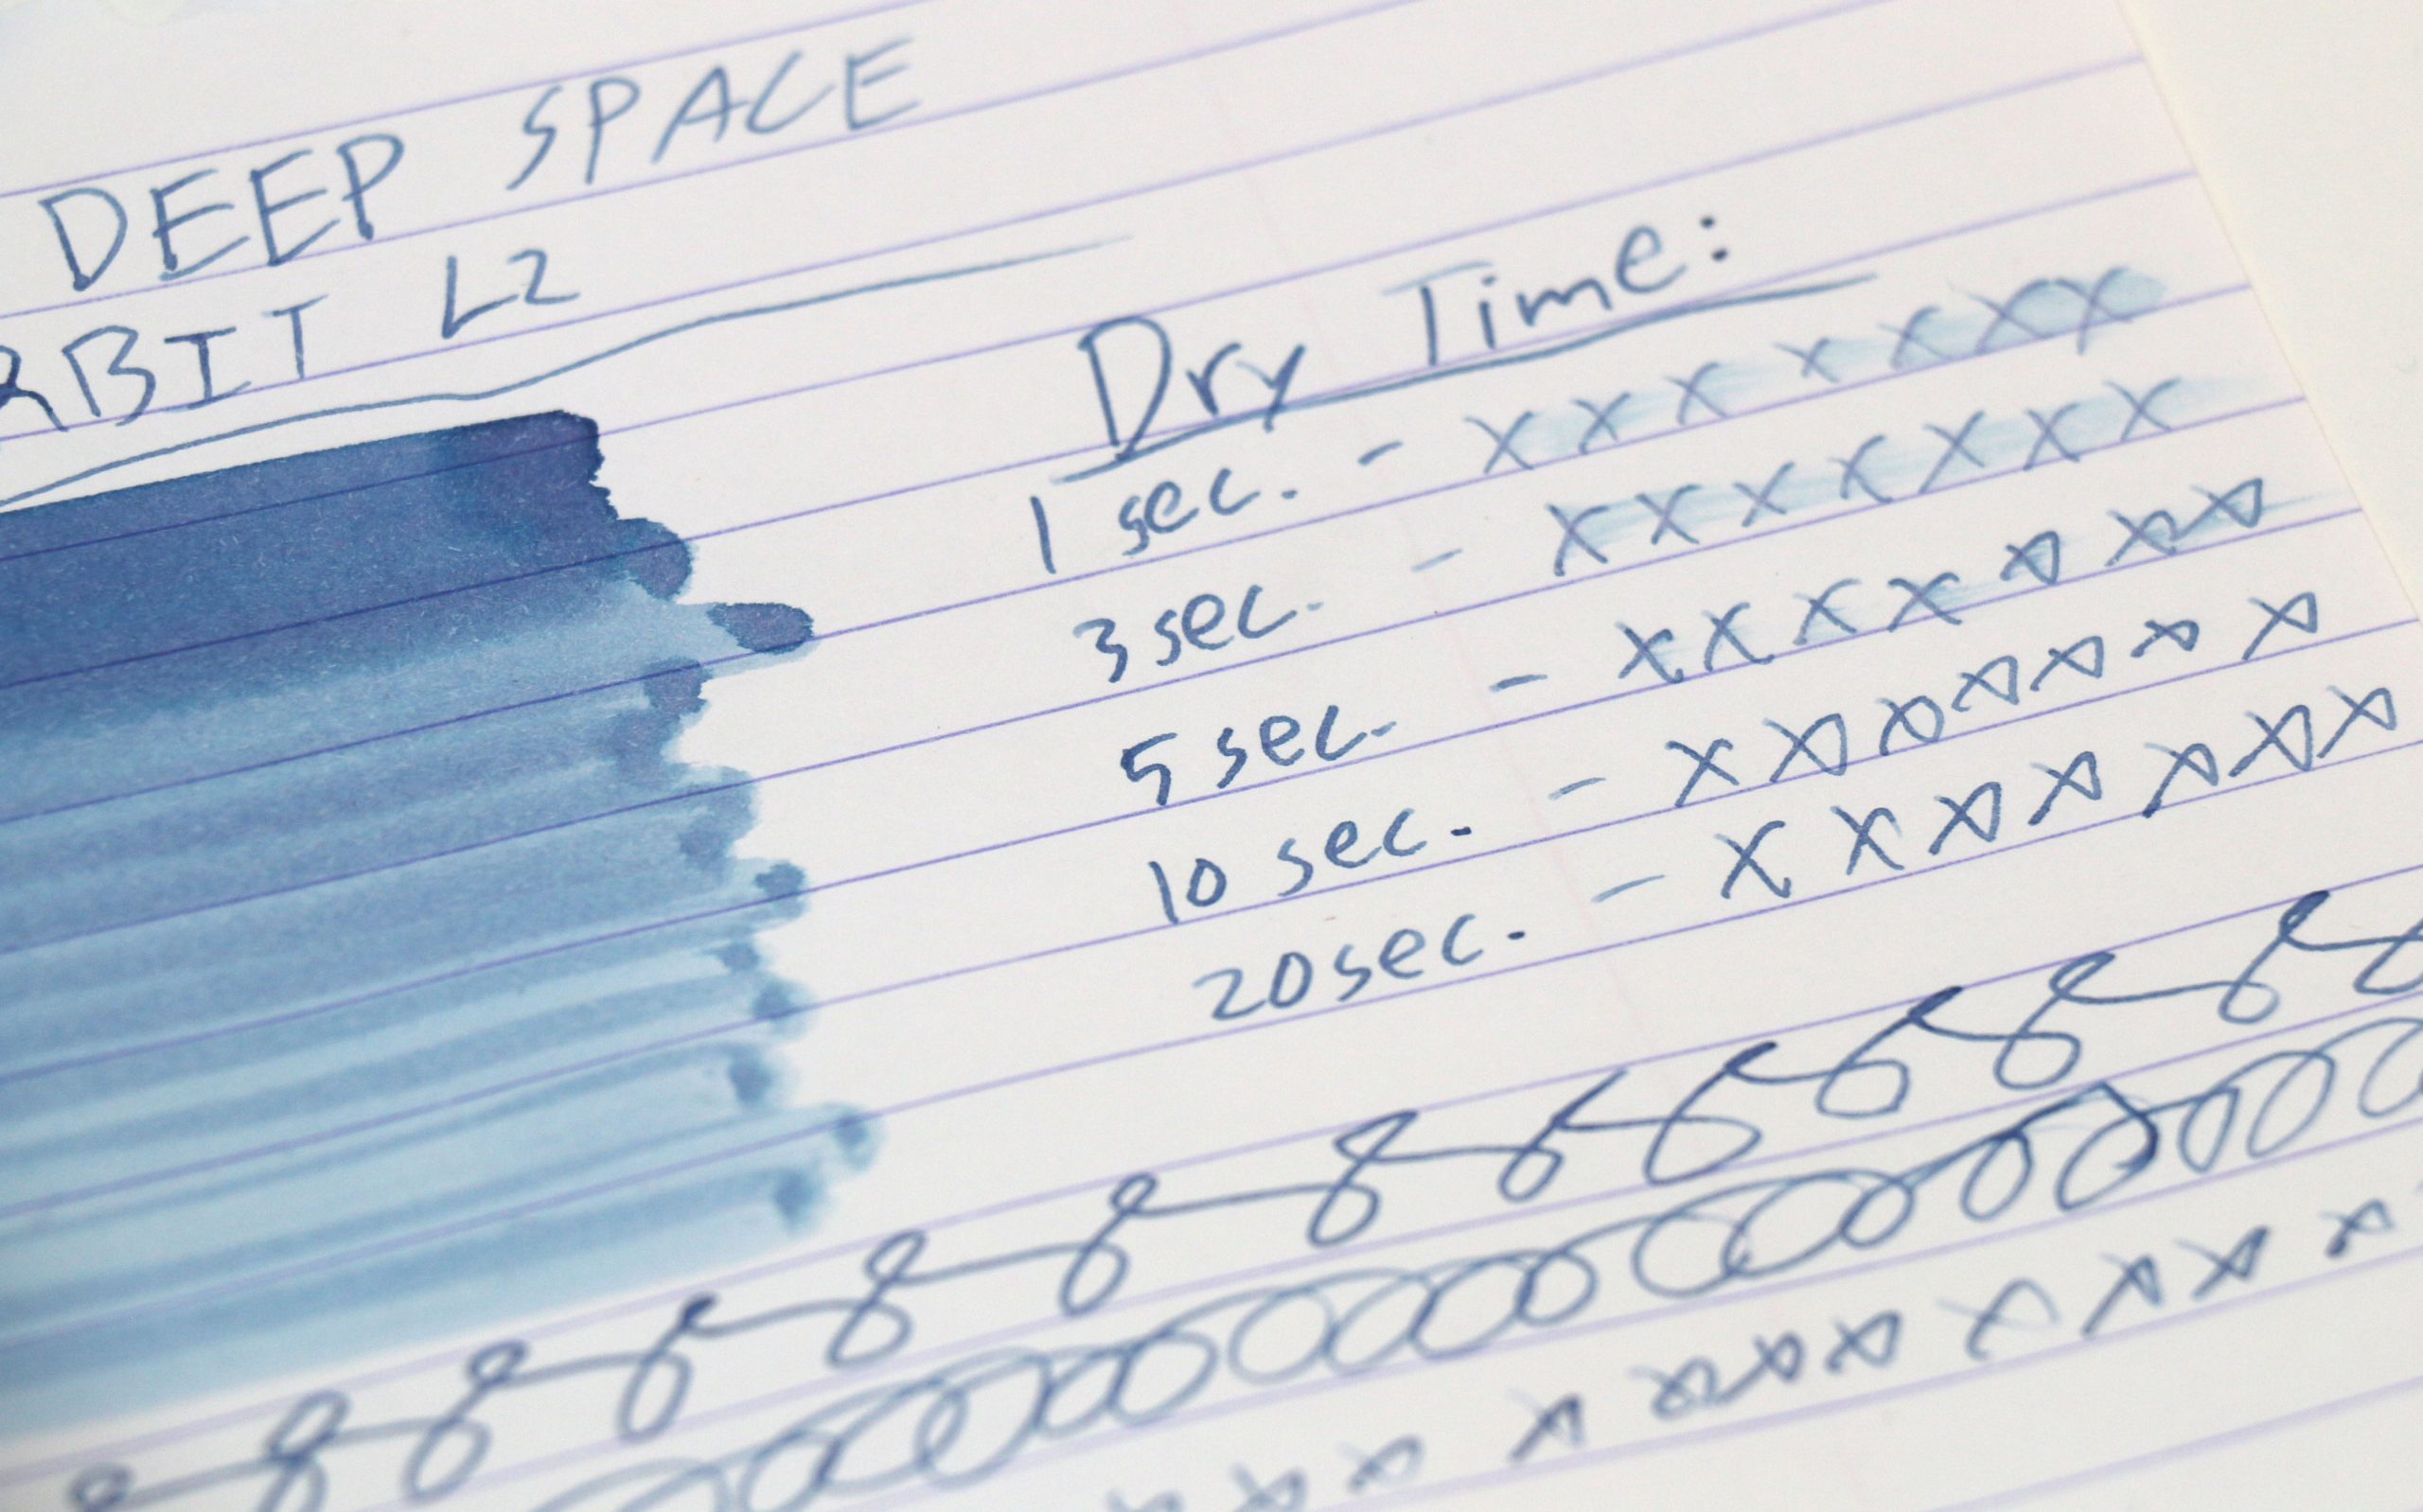 DEEP SPACE
RBIT L2
Dry Time:
1 sec. - x x x x x x x
3 sec. - x x x x x x x
5 sec. - x x x x x x x
10 sec. - x x x x x x x
20 sec. - x x x x x x x